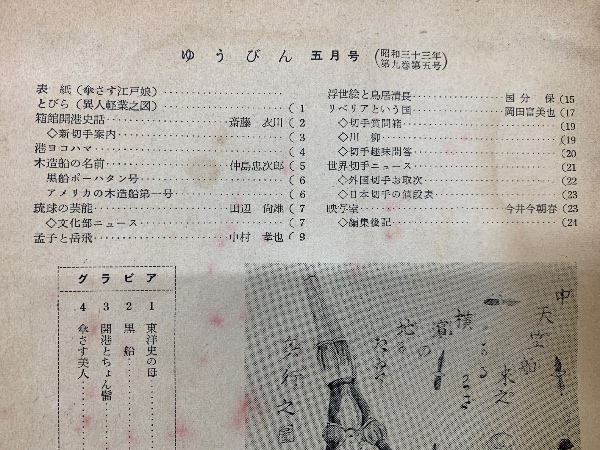 ゆうびん 五月号 (昭和三十三年 第九巻第五号)
表 紙(傘さす江戸娘)
とびら(異人軽業之図) ( 1
箱館開港史話 斎藤 衣川 ( 2
◇新切手案内 ( 3
港ヨコハマ ( 4
木造船の名前 仲島忠次郎 ( 5
黒船ポーハタン号 ( 6
アメリカの木造船第一号 ( 6
琉球の芸能 田辺 尚雄 ( 7
◇文化部ニュース ( 7
孟子と岳飛 中村 孝也 ( 9
浮世絵と鳥居清長 国分 保 (15
リベリアという国 岡田富美也 (17
◇切手質問箱 (19
◇川 柳 (19
◇切手趣味問答 (20
世界切手ニュース (21
◇外国切手お取次 (22
◇日本切手の値段表 (23
映写室 今井今朝春 (23
◇編集後記 (24
グラビア
1 東洋史の母
2 黒 船
3 開港とちょん髷
4 傘さす美人
中天竺舶来之
横
濱の
地